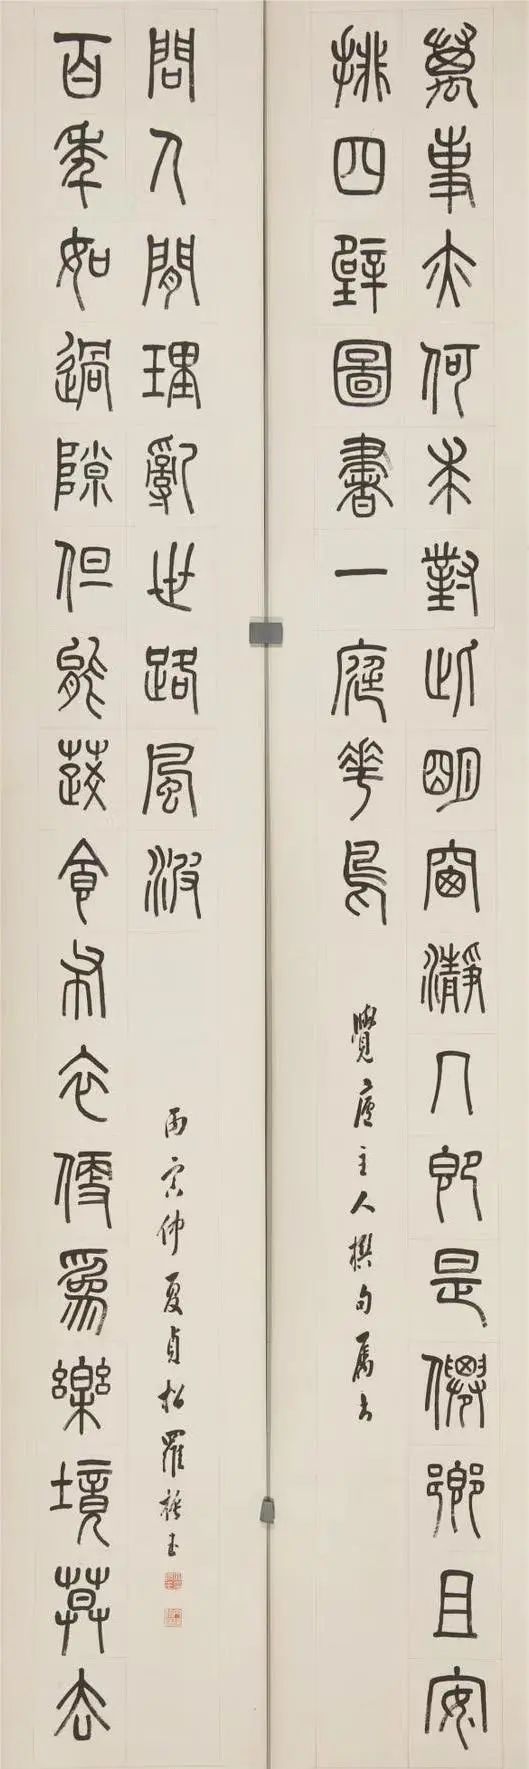 萬事亦何求對此明窗瀞几即是僊鄉且安
排四壁圖書一庭花鳥
覺廬主人撰句屬書
百年如過隙但能蔬食布衣便爲樂境莫去
問人閒理亂世路風波
丙寅仲夏貞松羅振玉